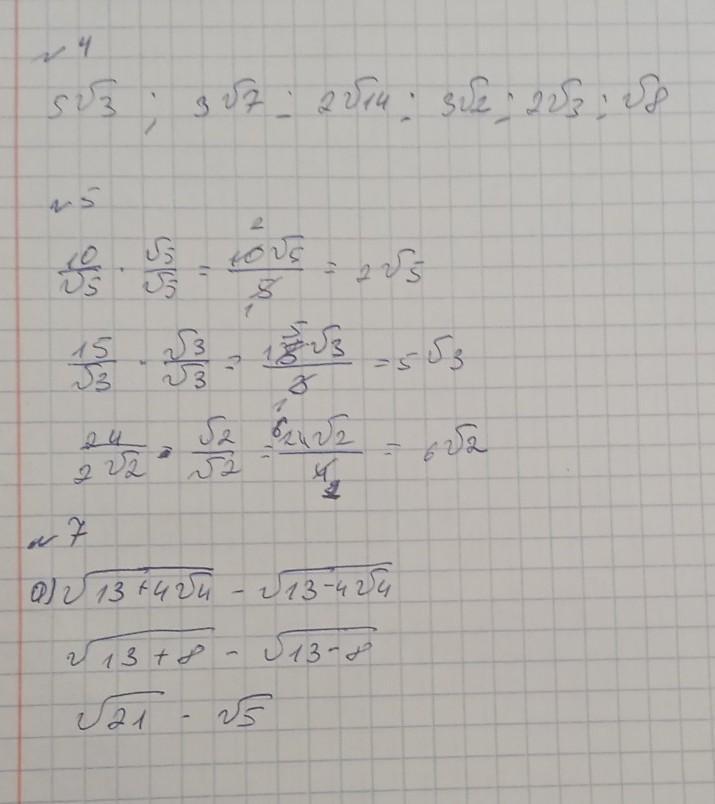 № 4
5√3 ; 3√7 ; 2√14 ; 3√2 ; 2√3 ; √8
№ 5
10/√5 · √5/√5 = 10√5/5 = 2√5
15/√3 · √3/√3 = 15√3/3 = 5√3
24/2√2 · √2/√2 = 24√2/4 = 6√2
№ 7
а) √(13+4√4) - √(13-4√4)
√(13+8) - √(13-8)
√21 - √5